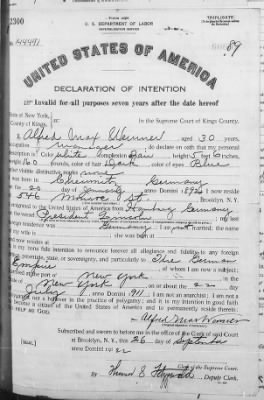 2300
U. S. DEPARTMENT OF LABOR
NATURALIZATION SERVICE
TRIPLICATE
No. 44491
89
UNITED STATES OF AMERICA
DECLARATION OF INTENTION
Invalid for all purposes seven years after the date hereof
State of New York,
County of Kings, ss:
In the Supreme Court of Kings County.
I, Alfred Max Wenner, aged 30 years,
occupation manager, do declare on oath that my personal
description is: Color white, complexion fair, height 5 feet 6 inches,
weight 160 pounds, color of hair Dark, color of eyes Blue
other visible distinctive marks none
I was born in Chemnitz Germany
on the 20 day of January, anno Domini 1892; I now reside
at 546 Monroe St., Brooklyn, N. Y.
I emigrated to the United States of America from Hamburg Germany
on the vessel President Lincoln; my last
foreign residence was Germany; I am not married; the name
she was born at
It is my bona fide intention to renounce forever all allegiance and fidelity to any foreign
prince, potentate, state, or sovereignty, and particularly to The German
Empire, of whom I am now a subject;
I arrived at the port of New York, in the
State of New York, on or about the 22 day
of July, anno Domini 1911; I am not an anarchist; I am not a
polygamist nor a believer in the practice of polygamy; and it is my intention in good faith
to become a citizen of the United States of America and to permanently reside therein:
SO HELP ME GOD.
Alfred Max Wenner
Subscribed and sworn to before me in the office of the Clerk of said Court
[SEAL] at Brooklyn, N. Y., this 26 day of September
anno Domini 1922
Clerk of the Supreme Court.
Deputy Clerk.